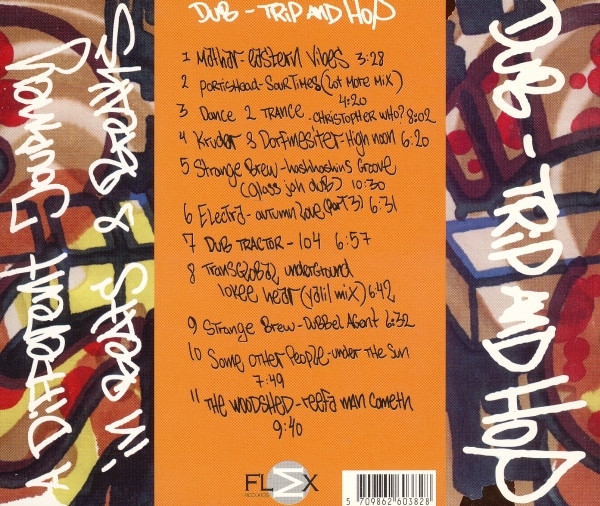 DUB - TRIP AND HOP
1 Mathar eastern Vibes 3:28
2 Portishead - SourTimes (Lot More Mix) 4:20
3 Dance 2 Trance - CHRISTOPHER WHO? 8:02
4 Kruder & Dorfmesiter High noon 6:20
5 Strange Brew - hashhashins Groove
(glass jah dub) 10:30
6 Electra - autumn love (part 3) 6:31
7 DUB TRACTOR - 104 6:57
8 TransGlobal underground
lokee hear (yalil mix) 6:42
9 Strange Brew - Dubbel Agent 6:32
10 Some Other People - under The Sun
7:49
11 THE WOODSHED - reefa man cometh
9:40
FLEX
RECORDS
5 709862 603828
A Different Journey
in Beats & Breaks
DUB - TRIP AND HOP